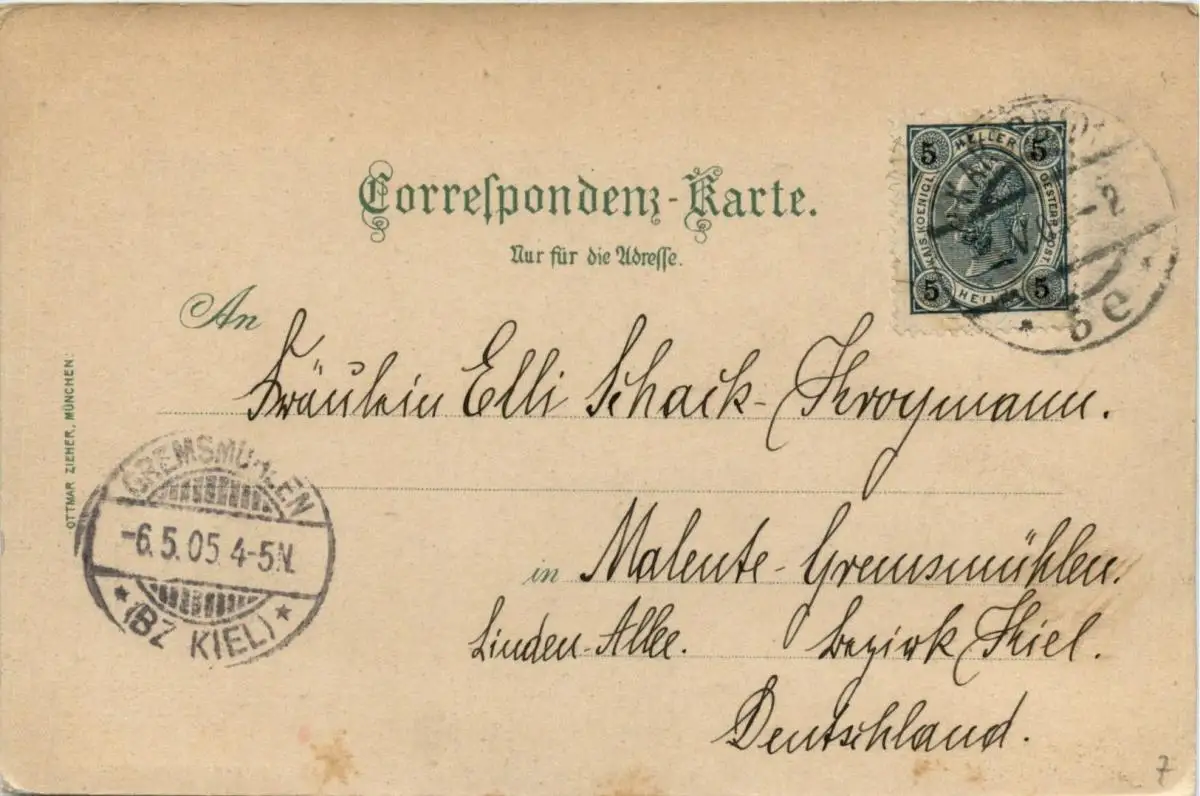 Correspondenz-Karte.
Nur für die Adresse.
5 HELLER 5
KAIS. KOENIGL. OESTERR. POST.
5 HELLER 5
5 e
An
Fräulein Elli Schack-Kroymann.
OTTMAR ZIEHER, MÜNCHEN:
GREMSMÜHLEN
-6.5.05.4-5N.
* (BZ KIEL) *
in Malente-Gremsmühlen.
Linden-Allee. Bezirk Kiel.
Deutschland.
7